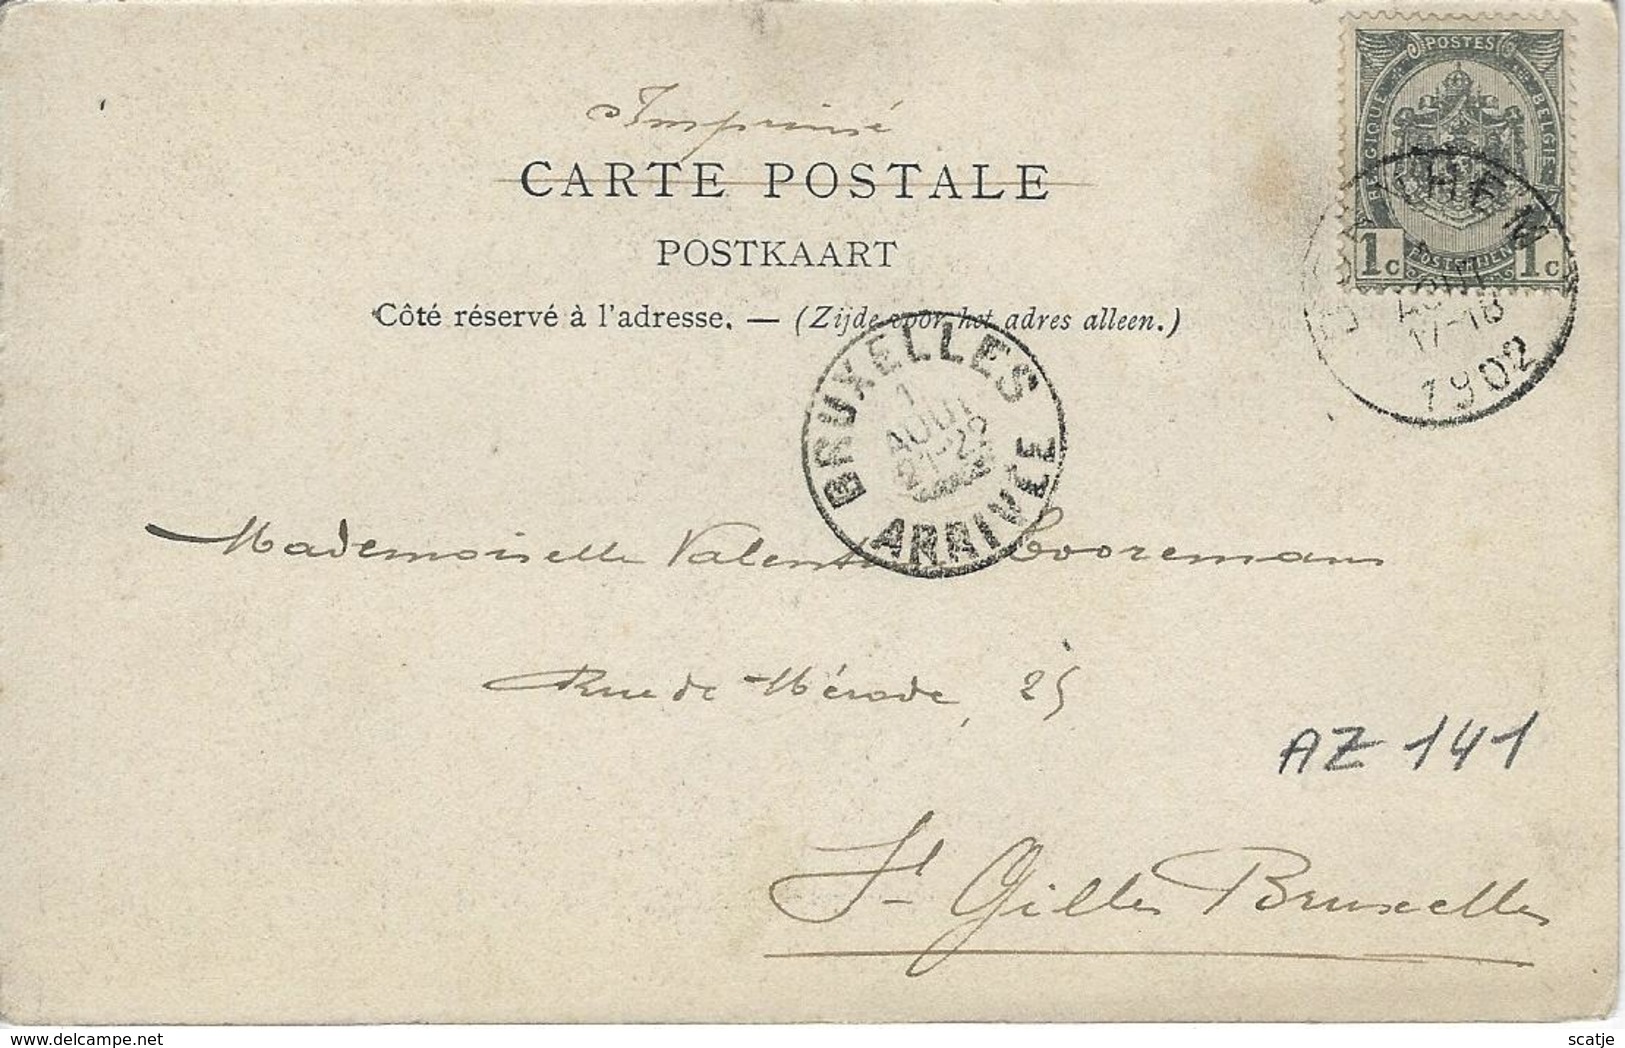 Imprimé
CARTE POSTALE
POSTKAART
Côté réservé à l'adresse. — (Zijde voor het adres alleen.)
POSTES
BELGIQUE
BELGIE
POSTERIJEN
1c 1c
AOUT
17-18
1902
BRUXELLES
1
AOUT
21-22
ARRIVÉE
Mademoiselle Valent Cooremans
Rue de Mérode, 25
AZ 141
St Gilles Bruxelles
delcampe.net
scatje